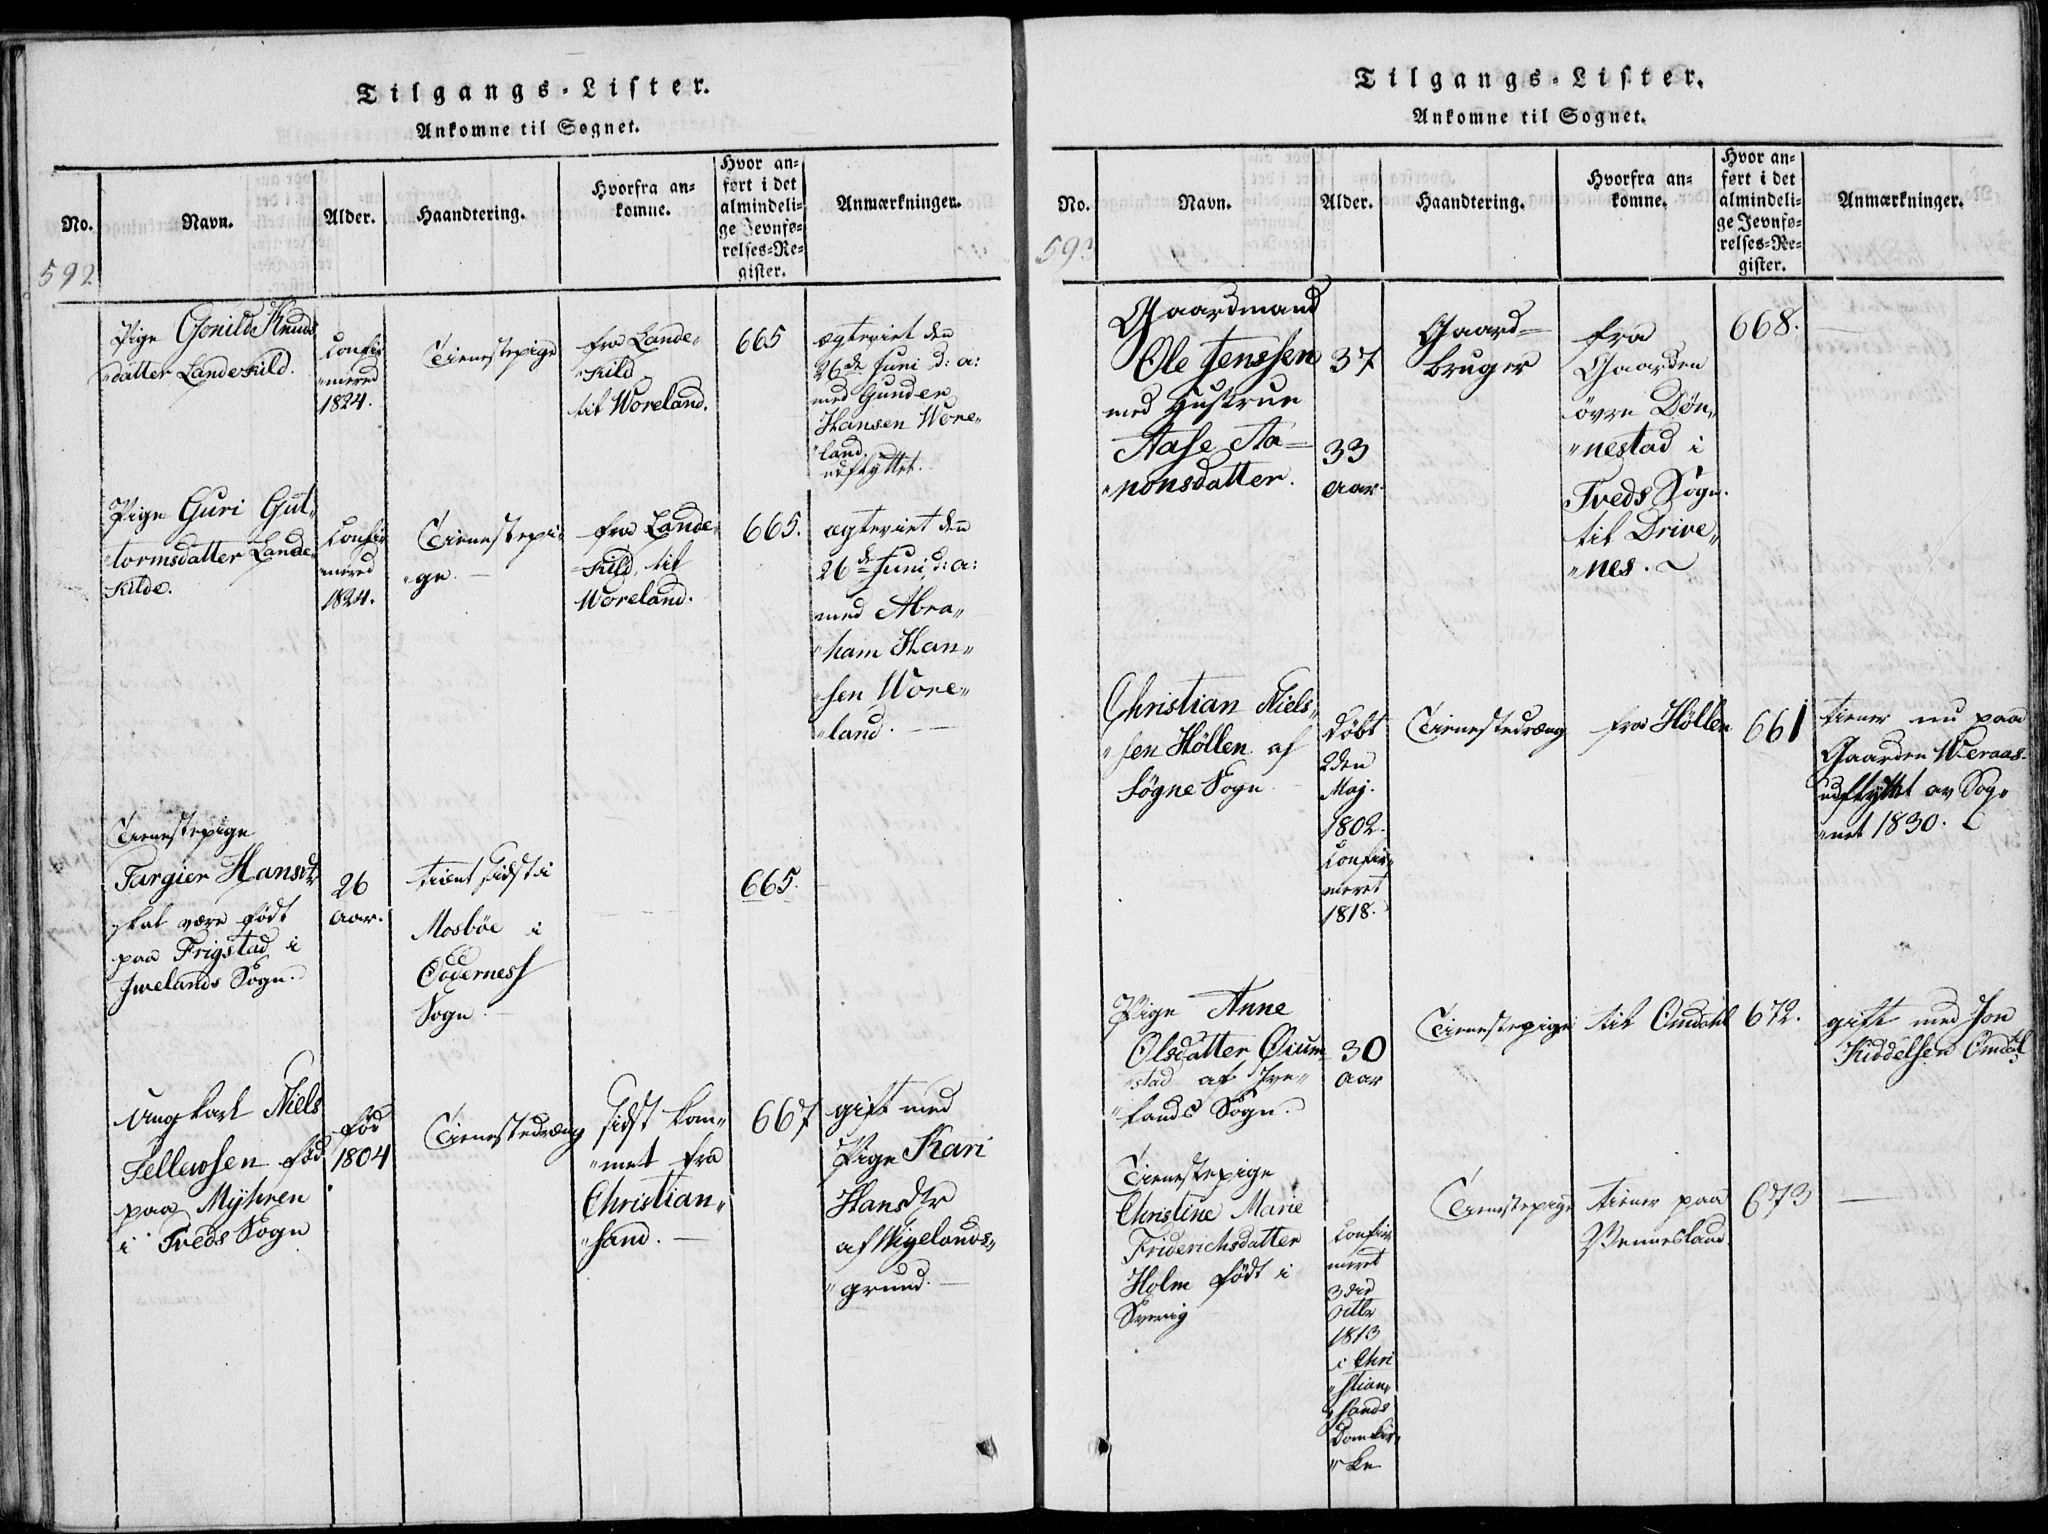 Tilgangs-Lister.
Ankomne til Sognet.
No.
Navn.
Alder.
Haandtering.
Hvorfra an-
komne.
Hvor an-
ført i det
almindeli-
ge Jevnfø-
relses-Re-
gister.
Anmærkninger.
592
Pige Gonild Knuds
datter Landeskild.
Confir
"mered
1824.
Tienestepige
fra Lande"
"skild
til Woreland.
665
ægteviet den
26de Juni d: a:
med Gunder
Hansen Wore"
"land.
udflyttet.
Pige Guri Gut"
"tormsdatter Lande"
skild.
Confir
"mered
1824.
Tienestepi"
"ge.
fra Lande"
"skild til
Woreland.
665.
ægteviet den
26de Juni d: a:
med Abra"
"ham Han"
"sen Wore"
"land.
Tienestepige
Targier Hansdtr
skal være født
paa Frigstad i
Iwelands Sogn.
26
aar.
tient sidst i
Mosböe i
Oddernes
Sogn
665.
Ungkarl Niels
Tellewsen fød
paa Myhren
i Tveds Sogn
fød
1804
Tienestedreng
sidst kom"
"met fra
Christian"
"sand.
667
gift med
Pige Kari
Hansdtr
af Wigelands"
"grund.
Tilgangs-Lister.
Ankomne til Sognet.
No.
Navn.
Alder.
Haandtering.
Hvorfra an-
komne.
Hvor an-
ført i det
almindeli-
ge Jevnfø-
relses-Re-
gister.
Anmærkninger.
593
Gaardmand
Ole Jenssen
med Hustrue
Aase Aa=
"nonsdatter.
37
33
aar.
Gaard=
bruger
fra
Gaarden
övre Døn"
"nestad i
Tveds Sogn.
til Drive"
"nes.
668.
Christian Niels"
"sen Höllen af
Søgne Sogn
Døbt
2den
Maj.
1802.
Confir"
meret
1818.
Tienestedreng
fra Höllen
661
tiener nu paa
Gaarden Weraas.
udflyttet av Sog"
"net 1830.
Pige Anne
Olsdatter Øium
"stad af Ive"
"lands Sogn.
30
aar
Tienestepige
til Omdahl
672.
gift med Jon
Kiddelsen Omdal
Tienestepige
Christine Marie
Friderichsdatter
Holm født i
Sverrig
Confir"
meret
3die
Octbr
1813
i Chri
"stian"
"sands
Domkir"
"ke
Tienestepige
tiener paa
Wennesland
673